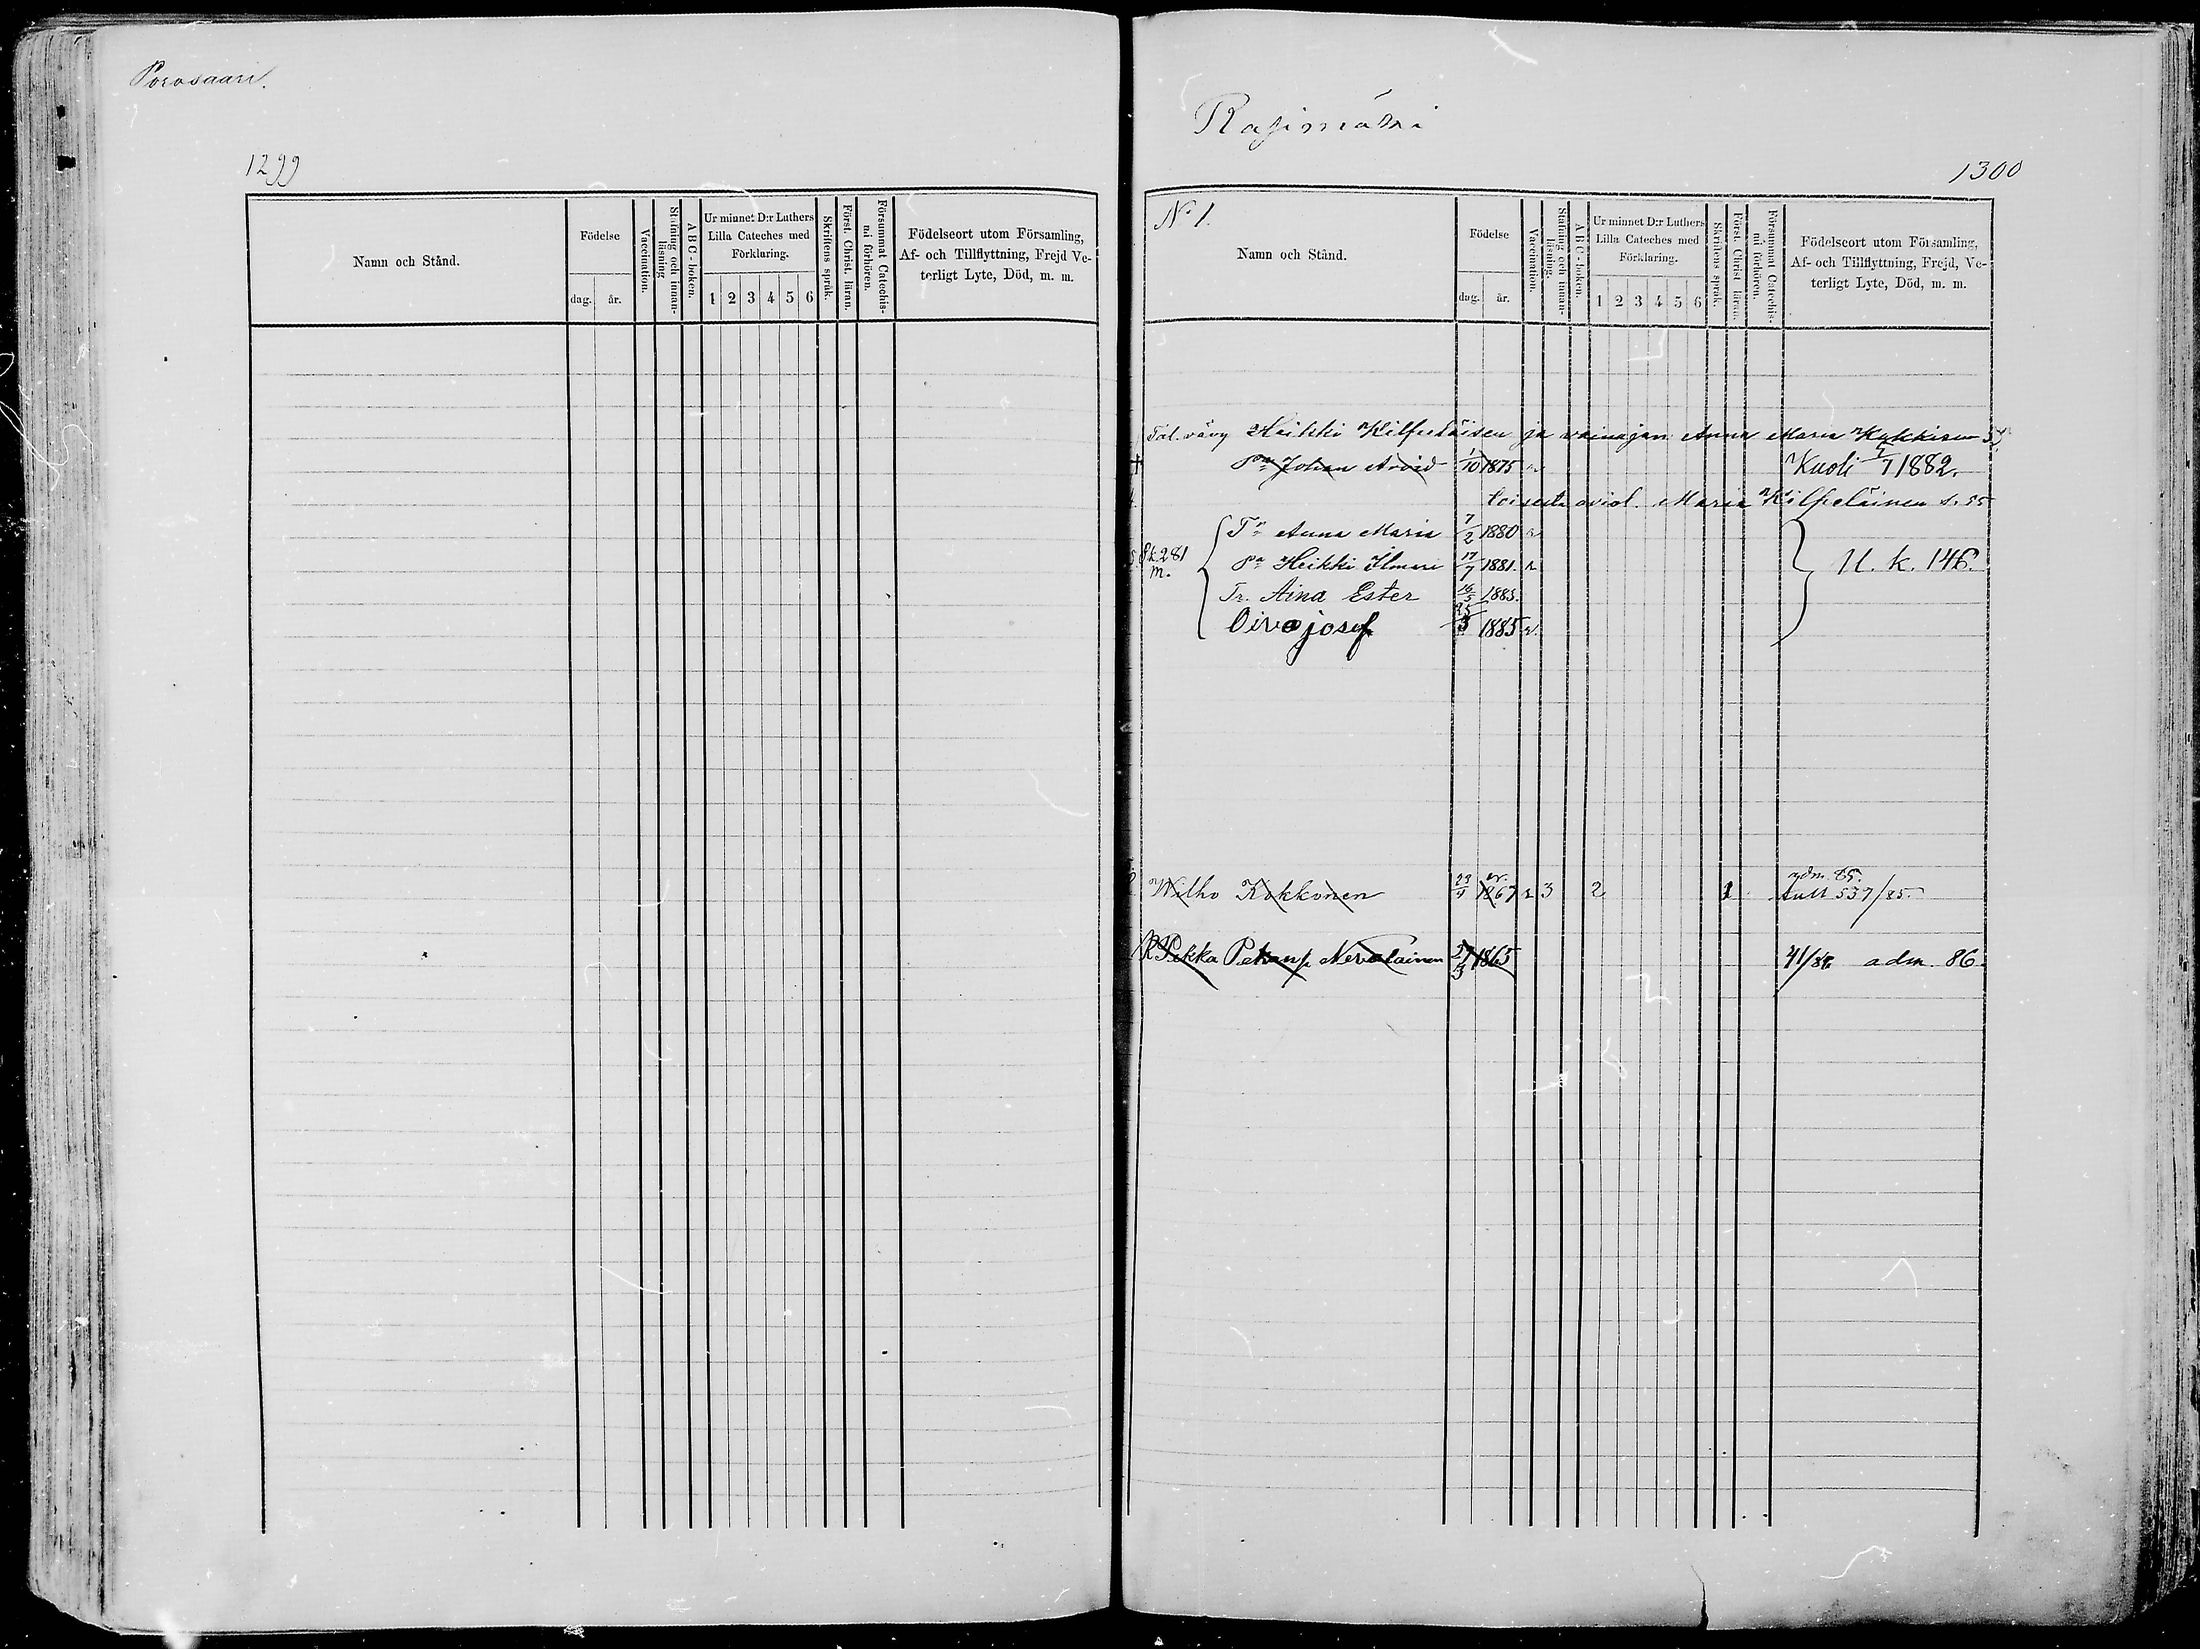 Porosaari.
1299
Namn och Stånd.
Födelse
dag.
år.
Vaccination.
Stafning och innan-
läsning
A B C - boken.
Ur minnet D:r Luthers
Lilla Cateches med
Förklaring.
1 2 3 4 5 6
Skriftens språk.
Först. Christ. läran.
Försummat Catechis-
mi förhören.
Födelseort utom Församling,
Af- och Tillflyttning, Frejd Ve-
terligt Lyte, Död, m. m.
Rasimäki
1300
No 1.
Namn och Stånd.
Födelse
dag.
år.
Vaccination.
Stafning och innan-
läsning.
A B C - boken.
Ur minnet D:r Luthers
Lilla Cateches med
Förklaring.
1 2 3 4 5 6
Skriftens språk.
Först. Christ läran.
Försummat Catechis-
mi förhören.
Födelseort utom Församling,
Af- och Tillflyttning, Frejd, Ve-
terligt Lyte, Död, m. m.
Tal. vävy Heikki Kilpeläisen ja vainajan Anna Maria Kukkisen
Pa Johan Arvid 1/10 1875 v Kuoli 7/7 1882.
toisesta aviol. Maria Kilpeläinen s. 55
Tr Anna Maria 7/2 1880 v
Sk 281 Pa Heikki Ilmari 17/7 1881. v U. k. 146.
m.
Tr. Aina Ester 16/5 1883.
Oiva josef 25/3 1885 v.
adm. 85.
Wilho Kokkonen 23/9 1867 v 3 2 1 tull 537/85.
R Pekka Pekanp. Nevalainen 27/3 1865 41/86 adm. 86.